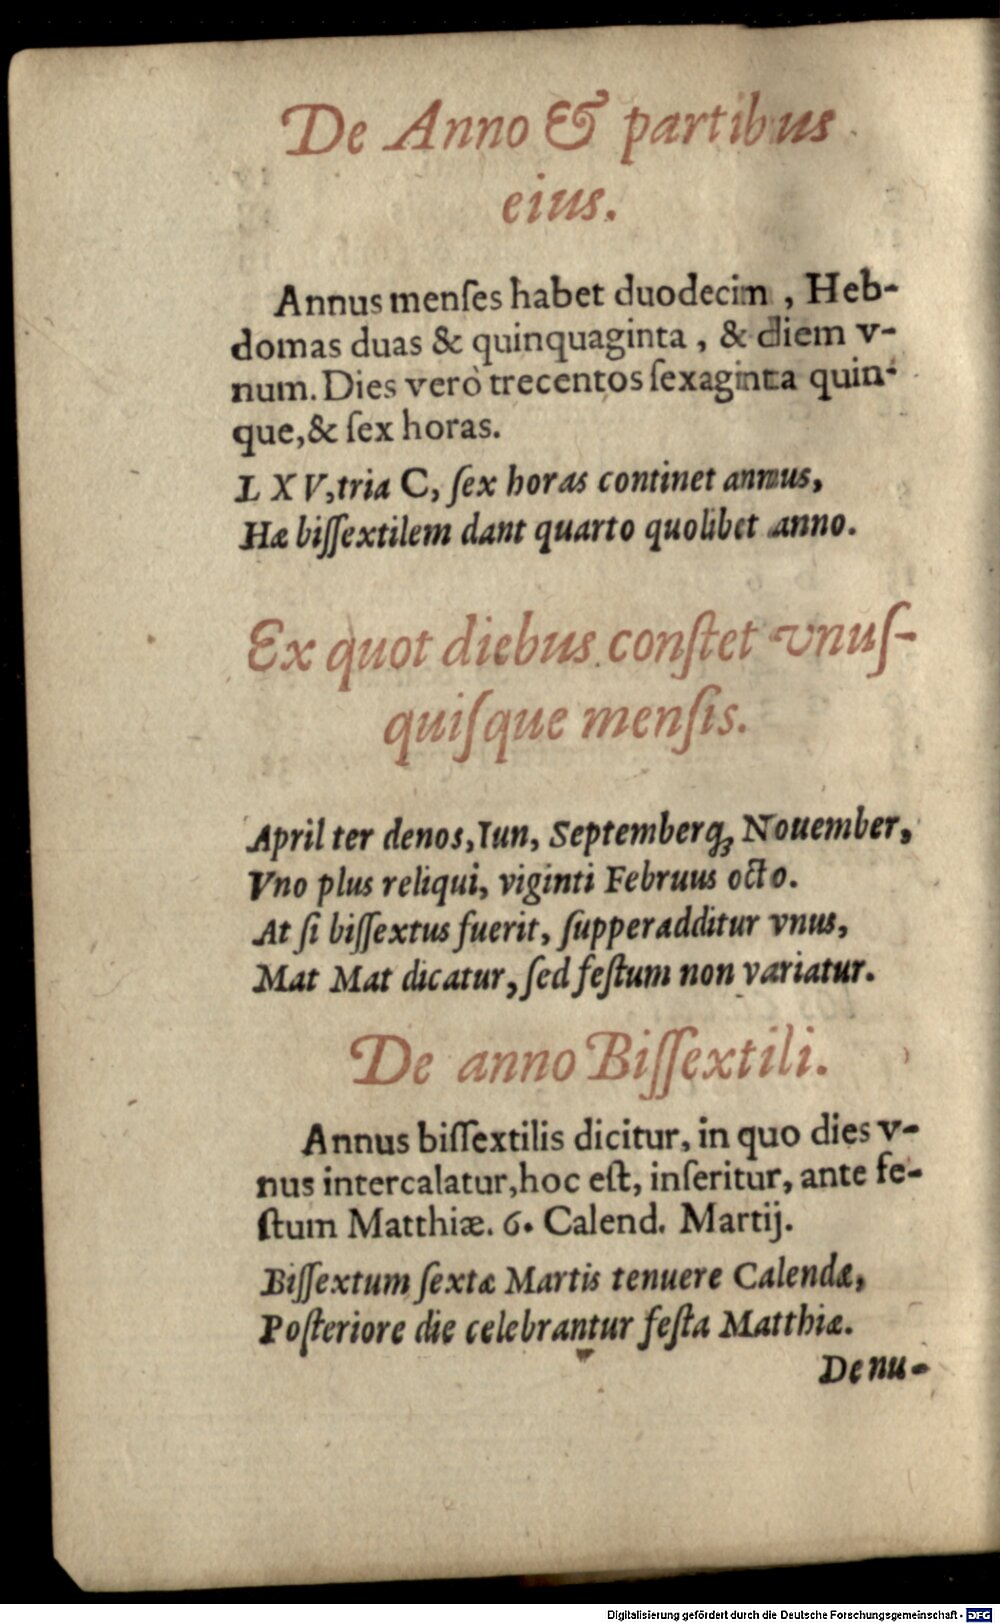 De Anno & partibus
eius.
Annus menſes habet duodecim, Heb-
domas duas & quinquaginta, & diem v-
num. Dies verò trecentos ſexaginta quin-
que, & ſex horas.
L X V, tria C, ſex horas continet annus,
Hæ biſſextilem dant quarto quolibet anno.
Ex quot diebus conſtet vnuſ-
quiſque menſis.
April ter denos, Iun, Septemberq́ꝫ Nouember,
Vno plus reliqui, viginti Februus octo.
At ſi biſſextus fuerit, ſupperadditur vnus,
Mat Mat dicatur, ſed feſtum non variatur.
De anno Biſſextili.
Annus biſſextilis dicitur, in quo dies v-
nus intercalatur, hoc eſt, inſeritur, ante fe-
ſtum Matthiæ. 6. Calend. Martij.
Biſſextum ſextæ Martis tenuere Calendæ,
Poſteriore die celebrantur feſta Matthiæ.
De nu-
Digitalisierung gefördert durch die Deutsche Forschungsgemeinschaft - DFG